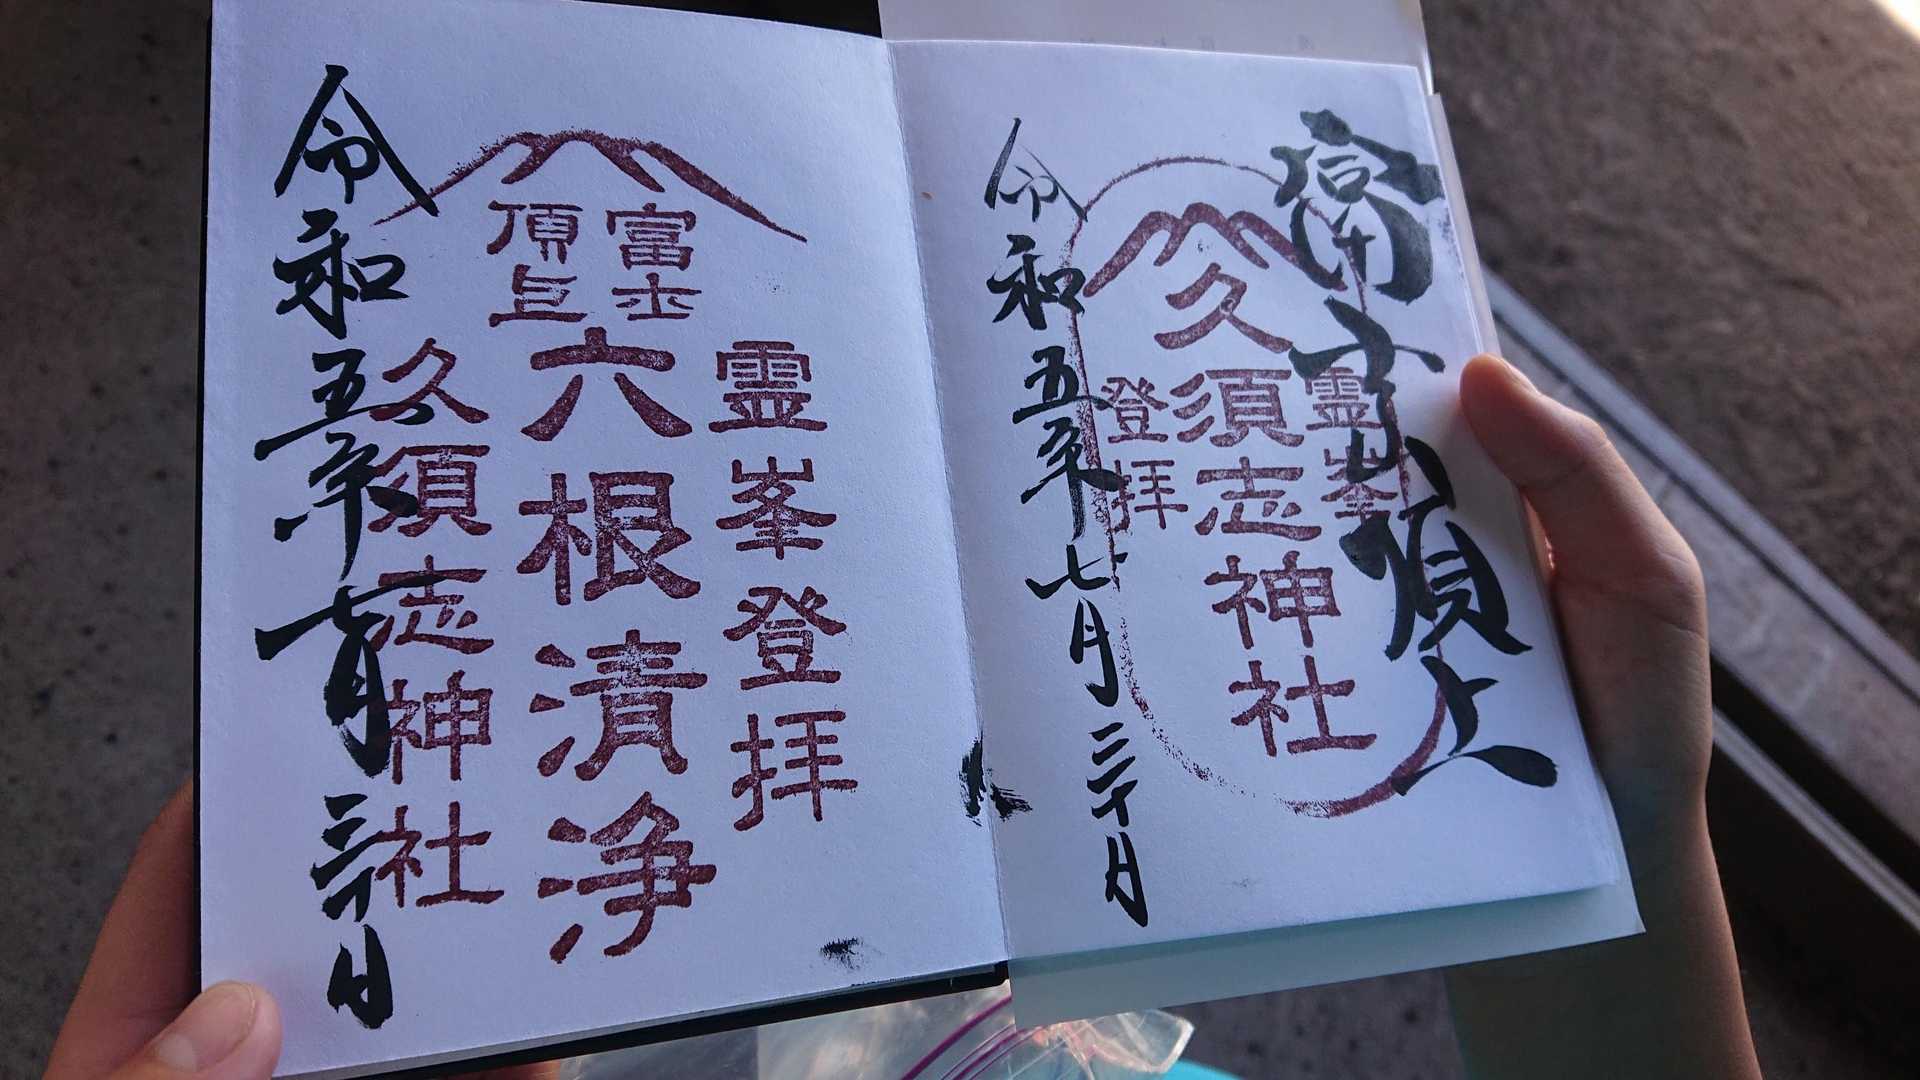 富士山頂上
霊峯
久須志神社
登拝
令和五年七月三十日
富士
頂上
霊峯登拝
六根清浄
久須志神社
令和五年七月三十日